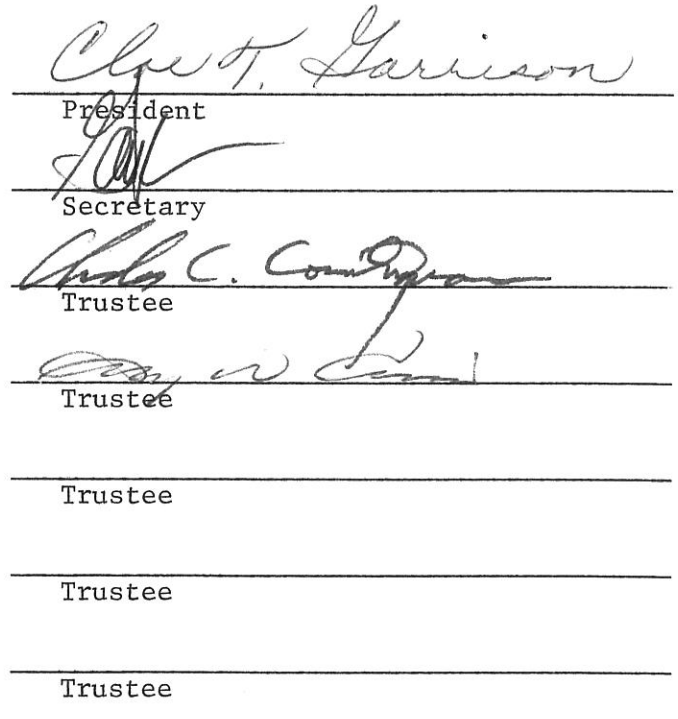 Cloe T. Garrison
President
Secretary
Charles C.
Trustee
W
Trustee
Trustee
Trustee
Trustee